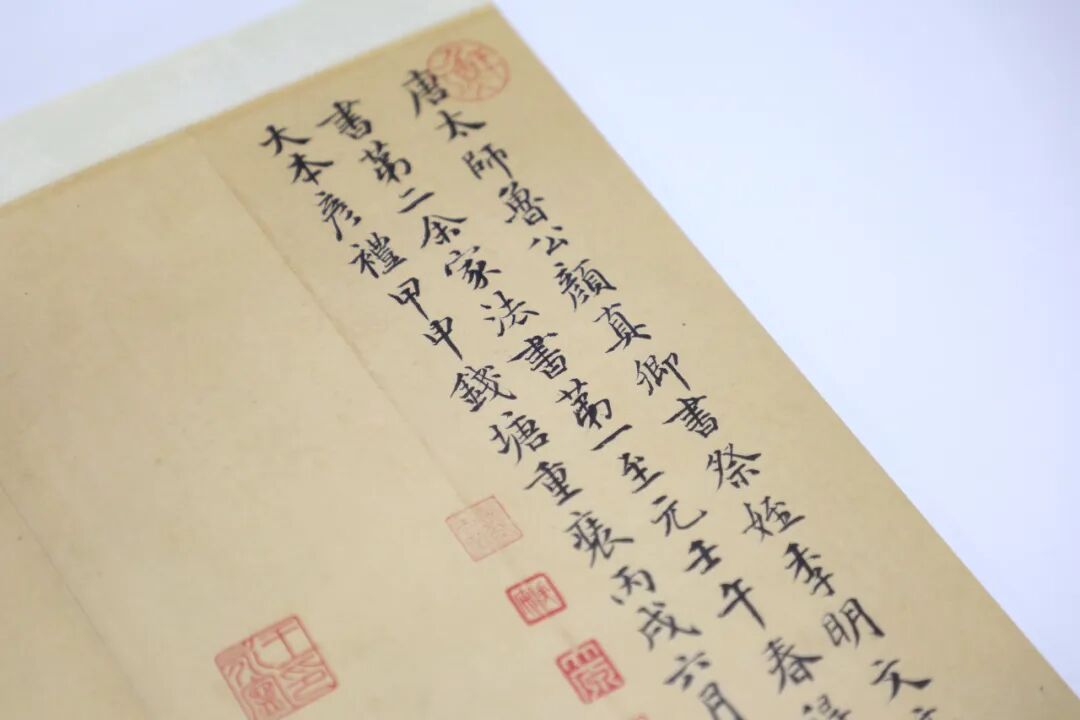 唐太師魯公顏真卿書祭姪季明文
書第二余家法書第一至元壬午春
大本彥禮甲申錢塘重裝丙戌六月